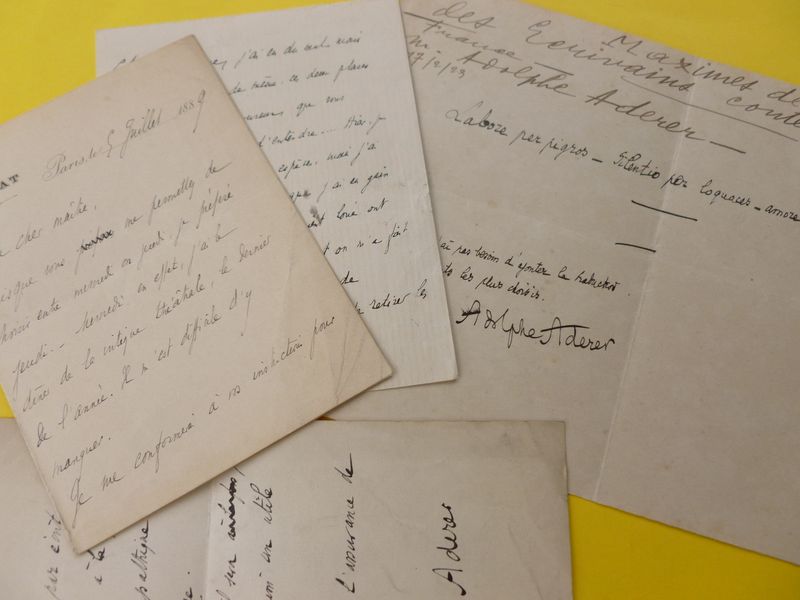 AT
Paris, le 5 Juillet 1889
cher maître,
que vous me permettez de
choisir entre mercredi ou jeudi je préfère
jeudi -- Mercredi en effet, j'ai le
dîner de la critique théâtrale, le dernier
de l'année. Il m'est difficile d'y
manquer.
Je me conformerai à vos instructions pour
j'ai eu du mais
de même. ces deux places
que vous
d'entendre... Hier, je
espèce, mais j'ai
que j'ai en
loué ont
on n'a fait
de
retirer les
Maximes de
des Ecrivains conte
France —
M. Adolphe Aderer —
17/2/99
Labore per pigros — Silentio per loquaces — amore
pas besoin d'ajouter la traduction.
les plus choisis.
Adolphe Aderer
par écrit
à la
pathique
sur
un utile
l'assurance de
Aderer